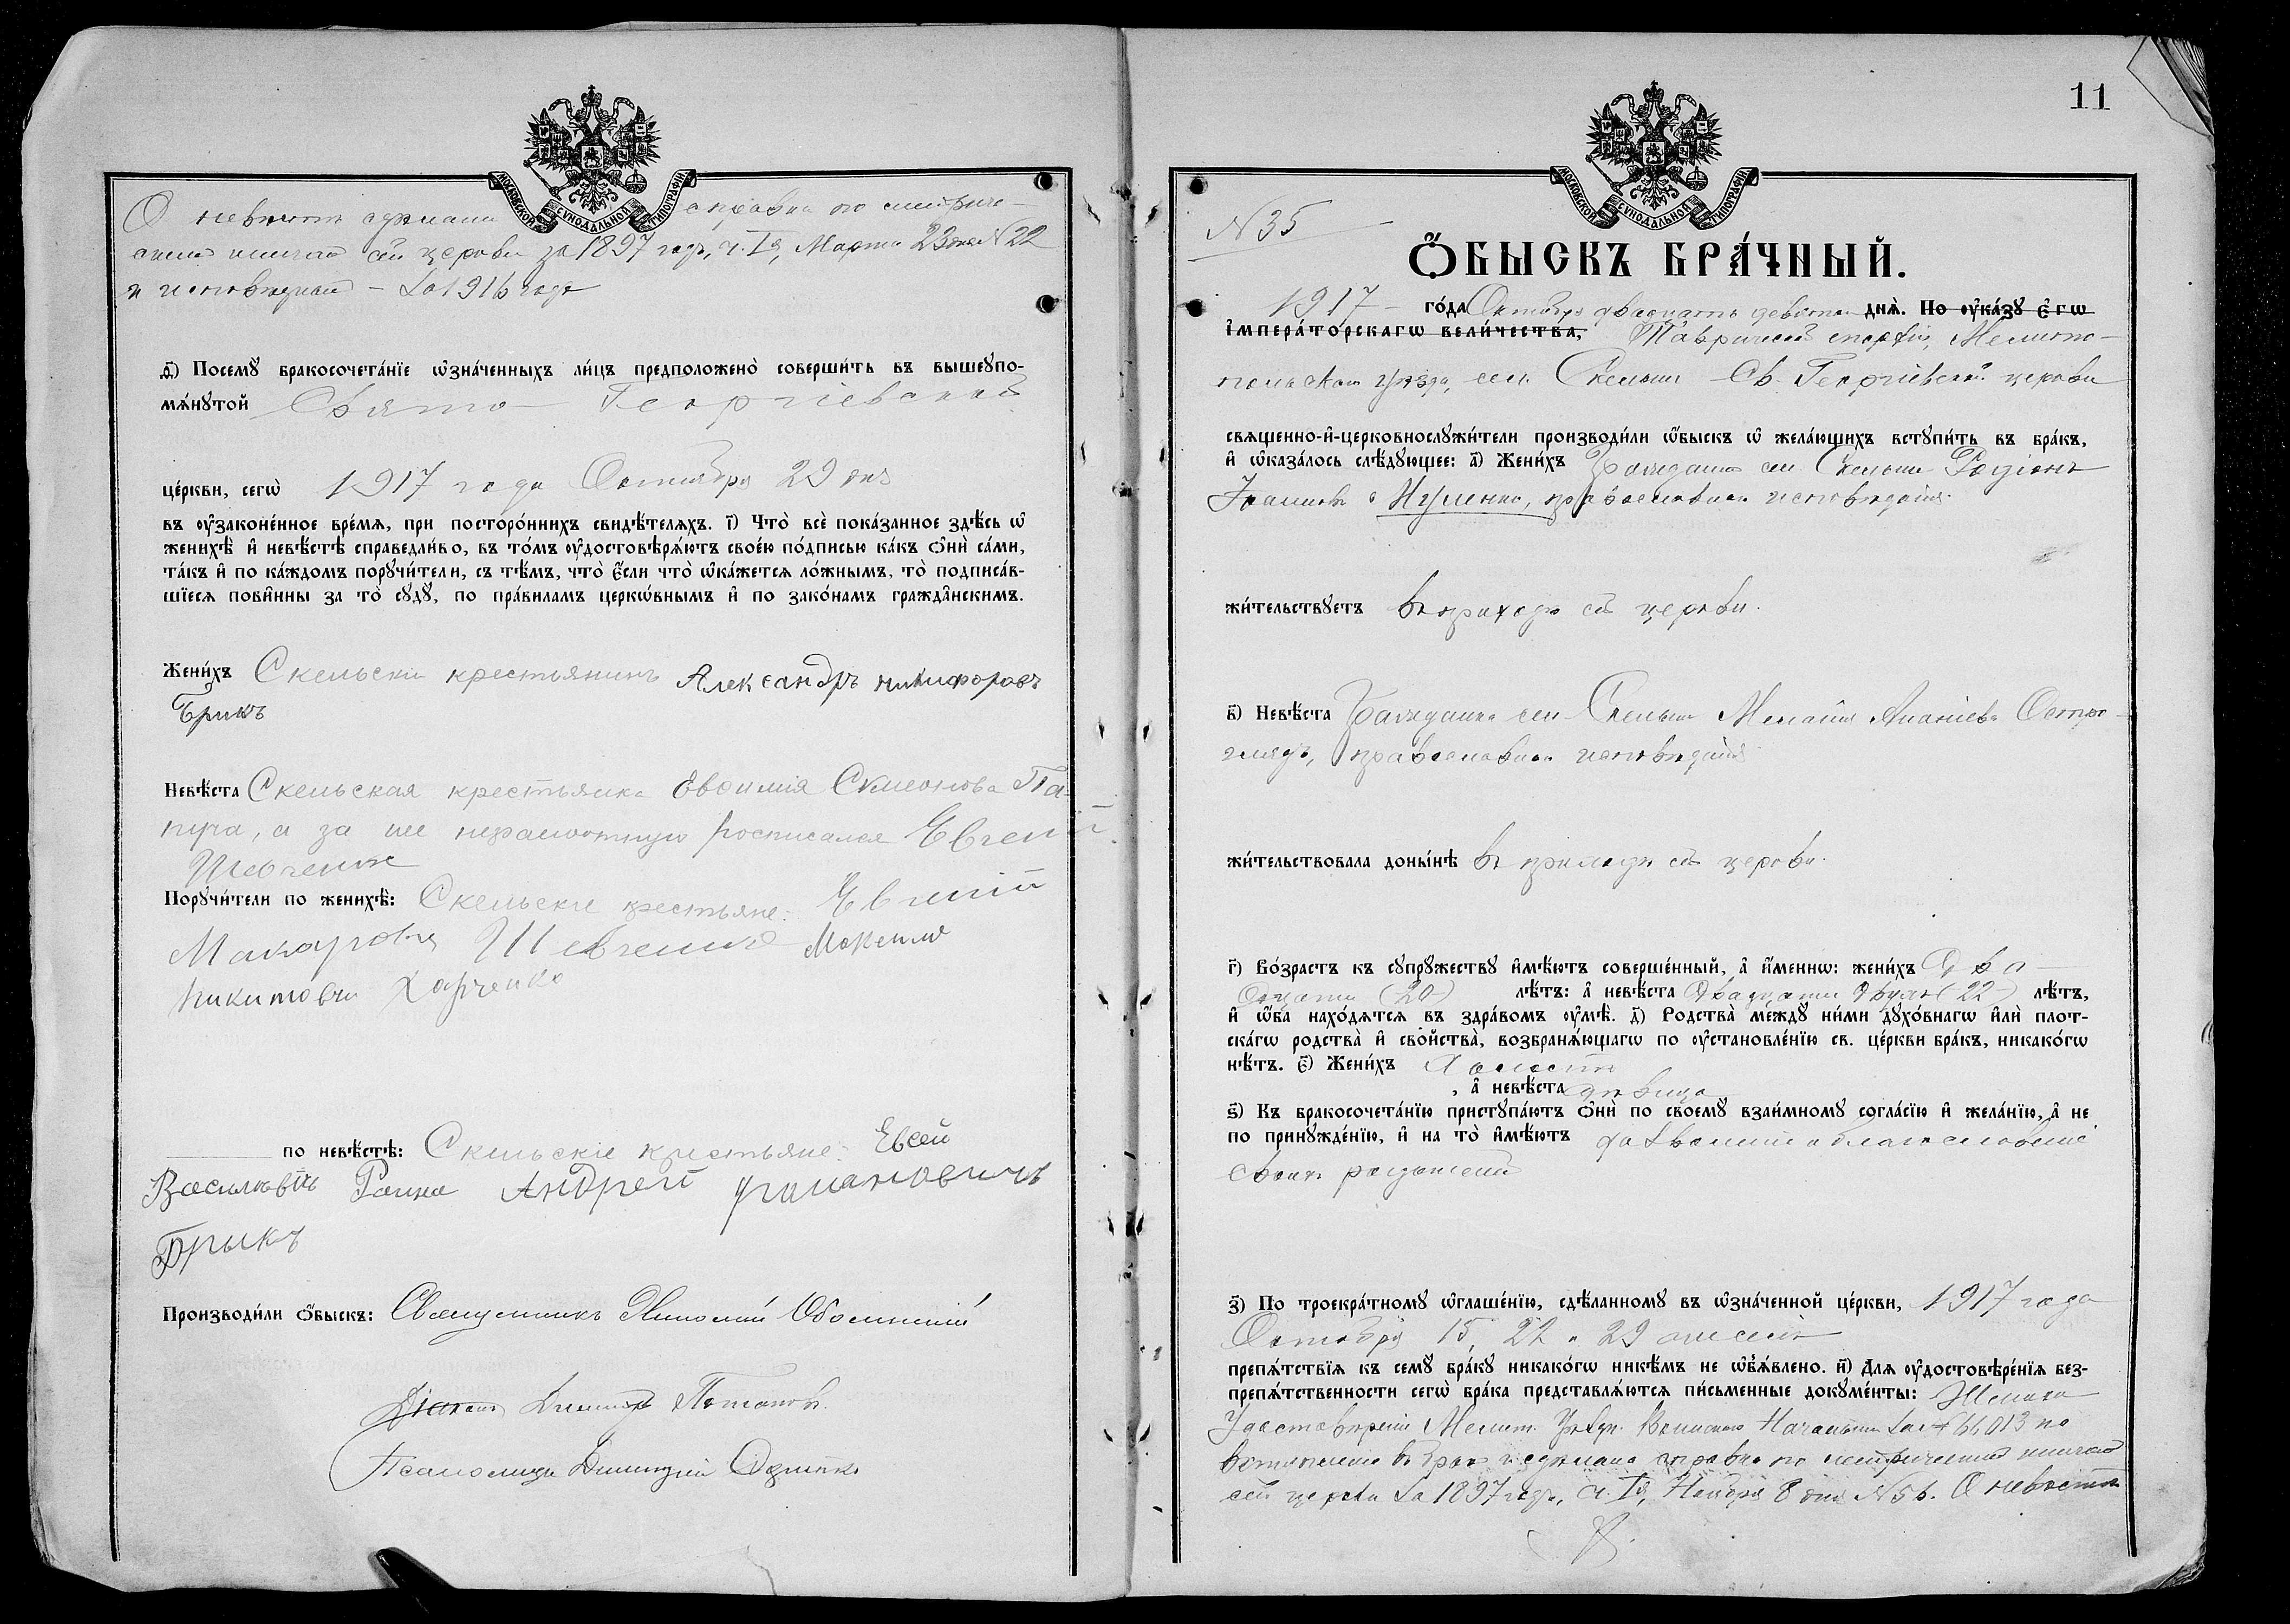 МОСКОВСКОЙ СѴНОДАЛЬНОЙ ТИПОГРАФІИ
О невѣстѣ сдѣлана справка по метриче-
ской книгѣ сей церкви за 1897 годъ, ч. Iя, Марта 23 дня № 22
и исповѣдной – за 1916 годъ
д҃) Посемꙋ̀ бракосочета́нїе ѡ҆зна́ченныхъ ли́цъ предположено̀ соверши́ть въ вышеꙋпо-
мѧ́нꙋтой Свято – Георгіевской
це́ркви, сегѡ̀ 1917 года Октября 29 дня
въ ᲂу҆зако́нѣнное вре́мѧ, при посторо́ннихъ свидѣ́телѧхъ. і҃) Что̀ всѐ пока́занное здѣ́сь ѡ҆
женихѣ̀ и҆ невѣ́стѣ справедли́во, въ то́мъ ᲂу҆достовѣрѧ́ютъ свое́ю по́дписью ка́къ ѻ҆нѝ са́ми,
та́къ и҆ по ка́ждомъ порꙋчи́тели, съ тѣ́мъ, что̀ є҆́сли что̀ ѡ҆ка́жетсѧ ло́жнымъ, то̀ подписа́в-
шїесѧ пови́нны за то̀ сꙋдꙋ̀, по пра́виламъ церко́внымъ и҆ по зако́намъ гражда́нскимъ.
Жени́хъ Скельскій крестьянинъ Александръ Никифоровъ
Брикъ
Невѣ́ста Скельская крестьянка Евѳимія Симеонова Па-
пуча, а за нее неграмотную росписался Евгеній
Шевченко
Порꙋчи́тели по женихѣ̀: Скельскіе крестьяне: Евгеній
Макаровъ Шевченко Максимъ
Никитовъ Харченко
по невѣ́стѣ: Скельскіе крестьяне: Евсей
Васильевъ Раина Андрей
Брыкъ
Производи́ли ѻ҆́быскъ: Священникъ Николай Оболенскій
Діаконъ Димитрій Потаповъ
Псаломщикъ Димитрій
11
МОСКОВСКОЙ СѴНОДАЛЬНОЙ ТИПОГРАФІИ
№ 35
Ѻ҆́БЫСКЪ БРА́ЧНЫЙ.
1917 – го́да Октября двадцать девятаго днѧ̀. По ᲂу҆ка́зꙋ є҆гѡ̀
і҆мпера́торскагѡ вели́чества, Таврической епархіи, Мелито-
польскаго уѣзда, сел. Скельки Св. Георгіевской церкви
свѧще́нно-и҆-церковнослꙋжи́тели производи́ли ѡ҆́быскъ ѡ҆ жела́ющихъ встꙋпи́ть въ бра́къ,
и҆ ѡ҆каза́лось слѣ́дꙋющее: а҃) Жени́хъ Гражданинъ сел. Скельки Родіонъ
Іоанновъ Нуменко, православнаго исповѣданія.
жи́тельствꙋетъ въ приходѣ сей церкви.
в҃) Невѣ́ста Гражданка сел. Скельки Меланія Ананіева Остро-
глядъ, православнаго исповѣданія
жи́тельствовала доны́нѣ въ приходѣ сей церкви.
г҃) Во́зрастъ къ сꙋпрꙋ́жествꙋ и҆мѣ́ютъ соверше́нный, а҆ и҆́меннѡ: жени́хъ Два-
дцати (20) лѣ́тъ: а҆ невѣ́ста Двадцати двухъ (22) лѣ́тъ,
и҆ ѡ҆́ба нахо́дѧтсѧ въ здра́вомъ ᲂу҆мѣ̀. д҃) Родства̀ междꙋ̀ ни́ми дꙋхо́внагѡ и҆лѝ плот-
ска́гѡ родства̀ и҆ сво́йства̀, возбранѧ́ющагѡ по ᲂу҆становле́нїю св. це́ркви бра́къ, никако́гѡ
нѣ́тъ. є҃) Жени́хъ Холостъ
, а҆ невѣ́ста дѣвица
ѕ҃) Къ бракосочета́нїю пристꙋпа́ютъ ѻ҆нѝ по своемꙋ̀ взаи́мномꙋ согла́сїю и҆ жела́нїю, а҆ не
по принꙋжде́нїю, и҆ на то̀ и҆мѣ́ютъ дозволеніе и благословеніе
своихъ родителей
з҃) По троекра́тномꙋ ѡ҆глаше́нїю, сдѣ́ланномꙋ въ ѡ҆зна́ченной це́ркви, 1917 года
Октября 15, 22 и 29 чиселъ
препѧ́тствїѧ къ семꙋ̀ бра́кꙋ никако́гѡ никѣ́мъ не ѡ҆б̾ѧ́влено. и҃) Длѧ ᲂу҆достовѣре́нїѧ без-
препѧ́тственности сегѡ̀ бра́ка представлѧ́ютсѧ пи́сьменные докꙋме́нты: Жениха
Удостовѣреніе Мелит. Уѣздн. Воинскаго Начальника за № 66013 на
вступленіе въ бракъ и сдѣлана справка по метрической книгѣ
сей церкви за 1897 годъ, ч. Iя, Ноября 8 дня № 56. О невѣстѣ